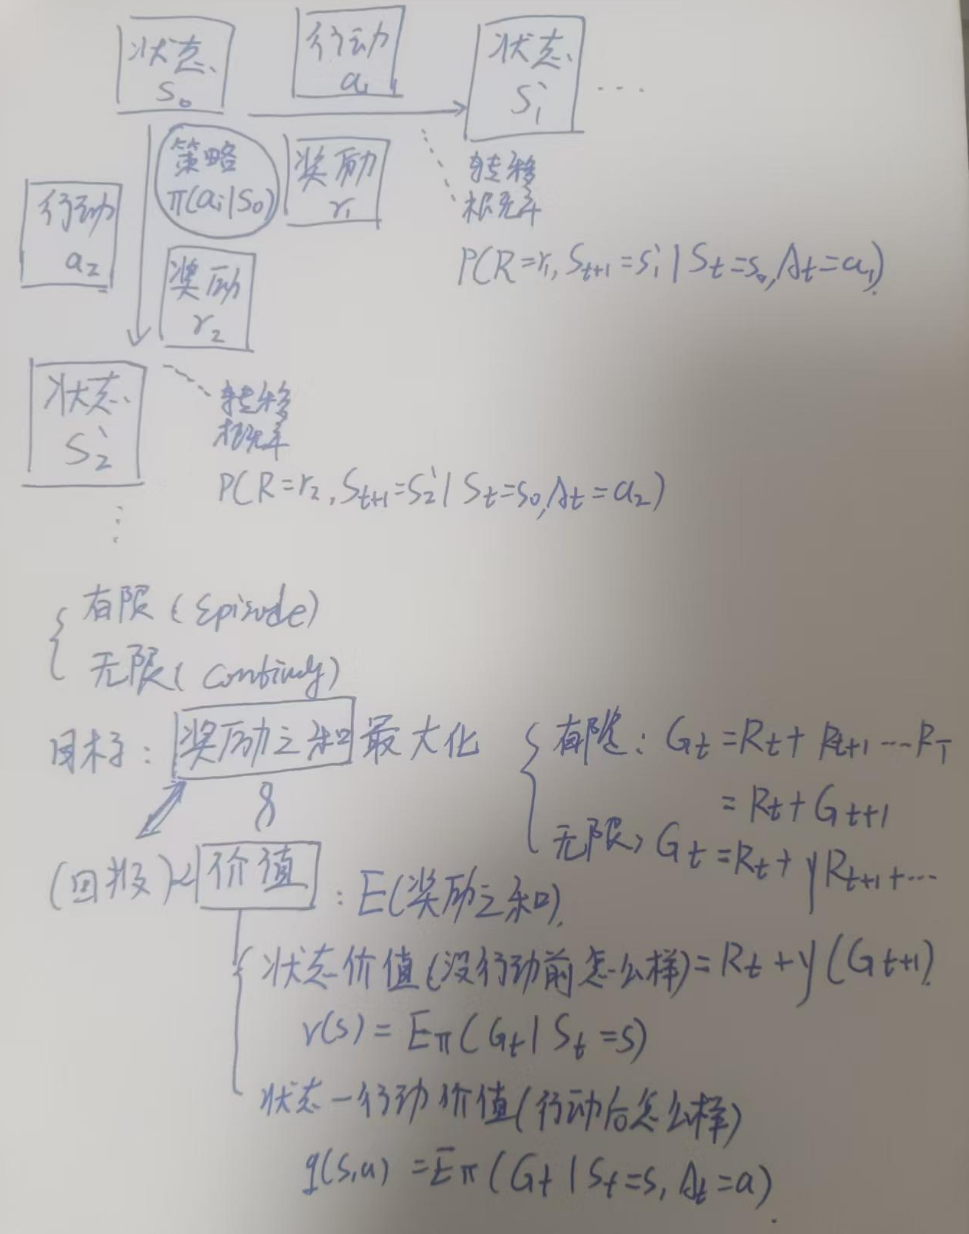 状态 S₀
行动 a₁
状态 S₁' ...
策略 π(aᵢ|S₀)
奖励 r₁
转移概率
P(R=r₁, Sₜ₊₁=S₁'|Sₜ=S₀,Aₜ=a₁)
行动 a₂
奖励 r₂
状态 S₂'
转移概率
P(R=r₂, Sₜ₊₁=S₂'|Sₜ=S₀,Aₜ=a₂)
⋮
有限(Episode)
无限(
目标: 奖励之和最大化
有限: Gₜ=Rₜ+Rₜ₊₁...R_T
=Rₜ+Gₜ₊₁
无限, Gₜ=Rₜ+γRₜ₊₁+...
(回报) 价值 : E(奖励之和)
状态价值(没行动前怎么样)=Rₜ+γ(Gₜ₊₁)
v(s)=Eπ(Gₜ|Sₜ=s)
状态-行动价值(行动后怎么样)
q(s,a)=Eπ(Gₜ|Sₜ=s, Aₜ=a)